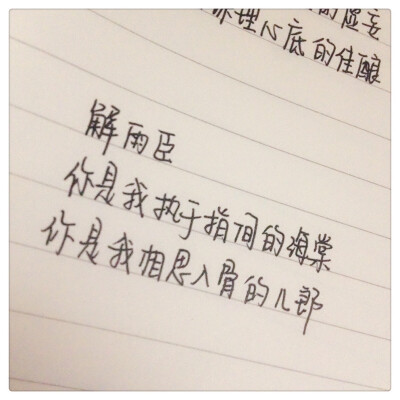 的虚妄
你埋心底的佳酿
解雨臣
你是我执于指间的海棠
你是我相思入骨的儿郎